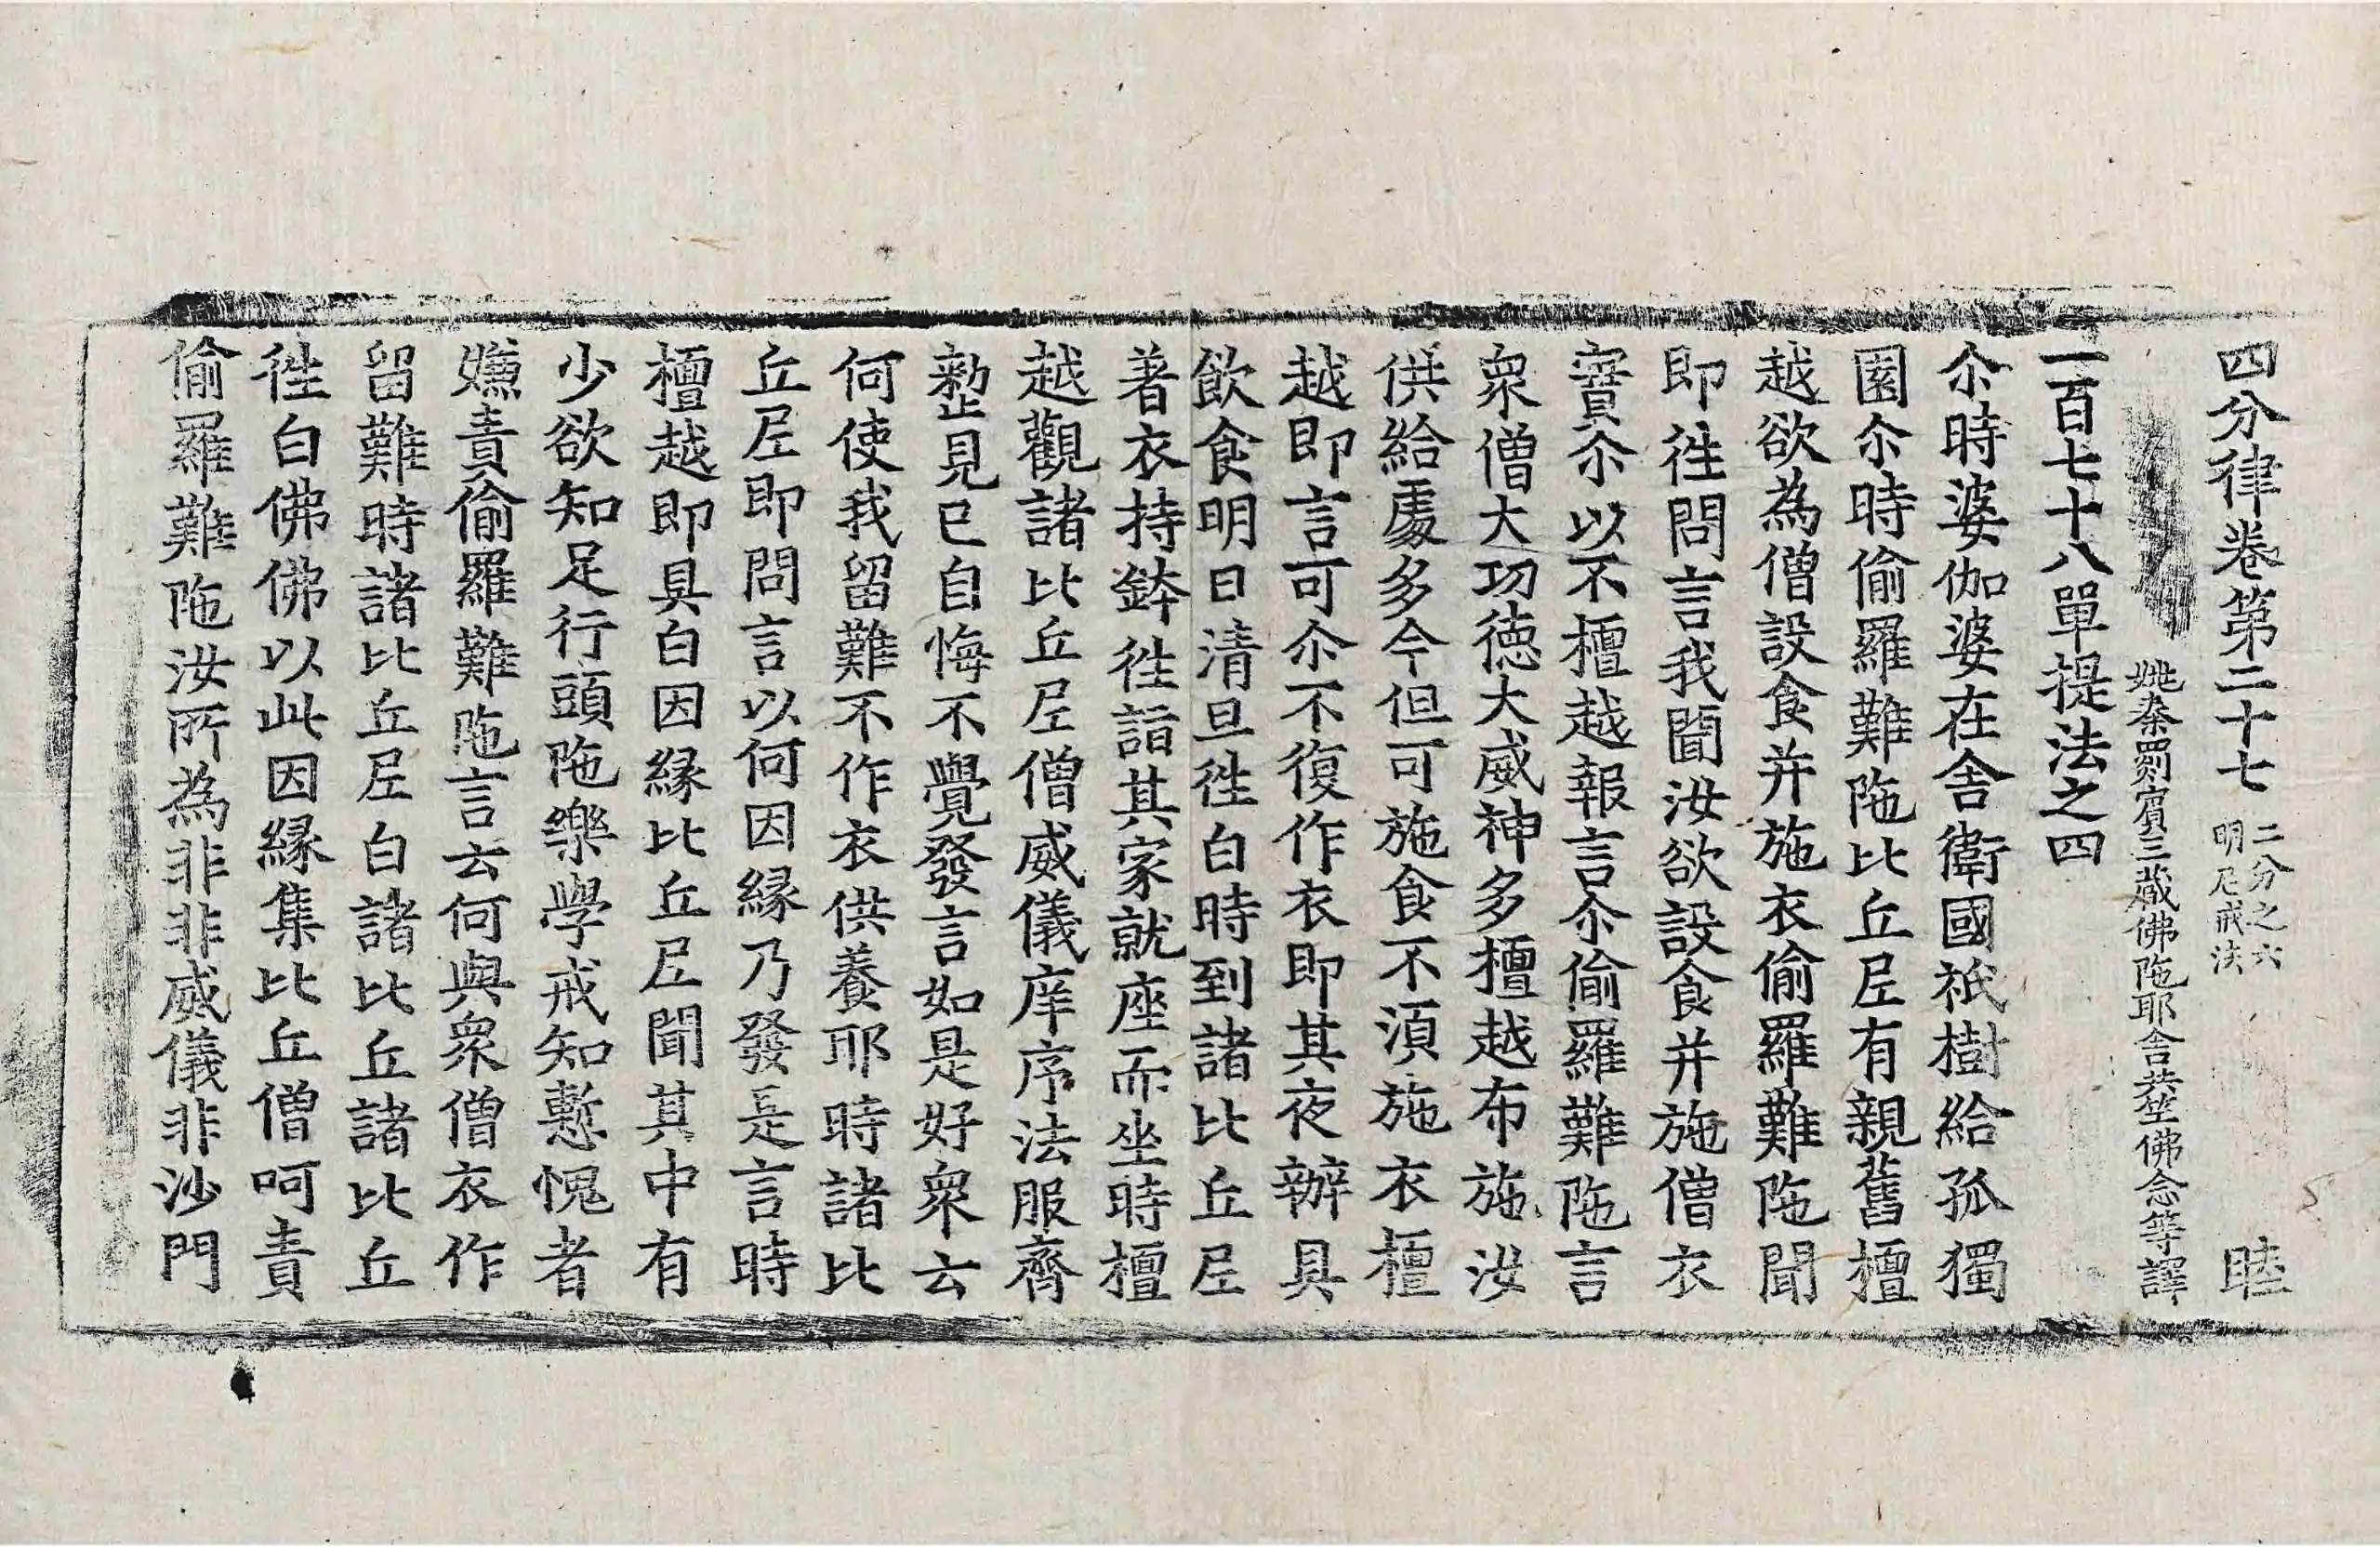 四分律卷第二十七 二分之六 明尼戒法 睦
姚秦罽賓三藏佛陁耶舍共竺佛念等譯
一百七十八單提法之四
尒時婆伽婆在舎衛國祇樹給孤獨
園尒時偷羅難陁比丘尼有親舊檀
越欲為僧設食并施衣偷羅難陁聞
即徃問言我聞汝欲設食并施僧衣
實尒以不檀越報言尒偷羅難陁言
衆僧大功徳大威神多檀越布施汝
供給處多今但可施食不湏施衣檀
越即言可尒不復作衣即其夜辦具
飲食明日清旦徃白時到諸比丘尼
著衣持鉢徃詣其家就座而坐時檀
越觀諸比丘尼僧威儀庠序法服齊
整見已自悔不覺發言如是好衆云
何使我留難不作衣供養耶時諸比
丘尼即問言以何因縁乃發是言時
檀越即具白因縁比丘尼聞其中有
少欲知足行頭陁樂學戒知慙愧者
嫌責偷羅難陁言云何與衆僧衣作
留難時諸比丘尼白諸比丘諸比丘
徃白佛佛以此因縁集比丘僧呵責
偷羅難陁汝所為非非威儀非沙門